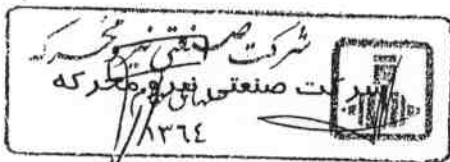 شرکت صنعتی نیرو محرکه
شرکت صنعتی نیرو محرکه
۱۳۶۴